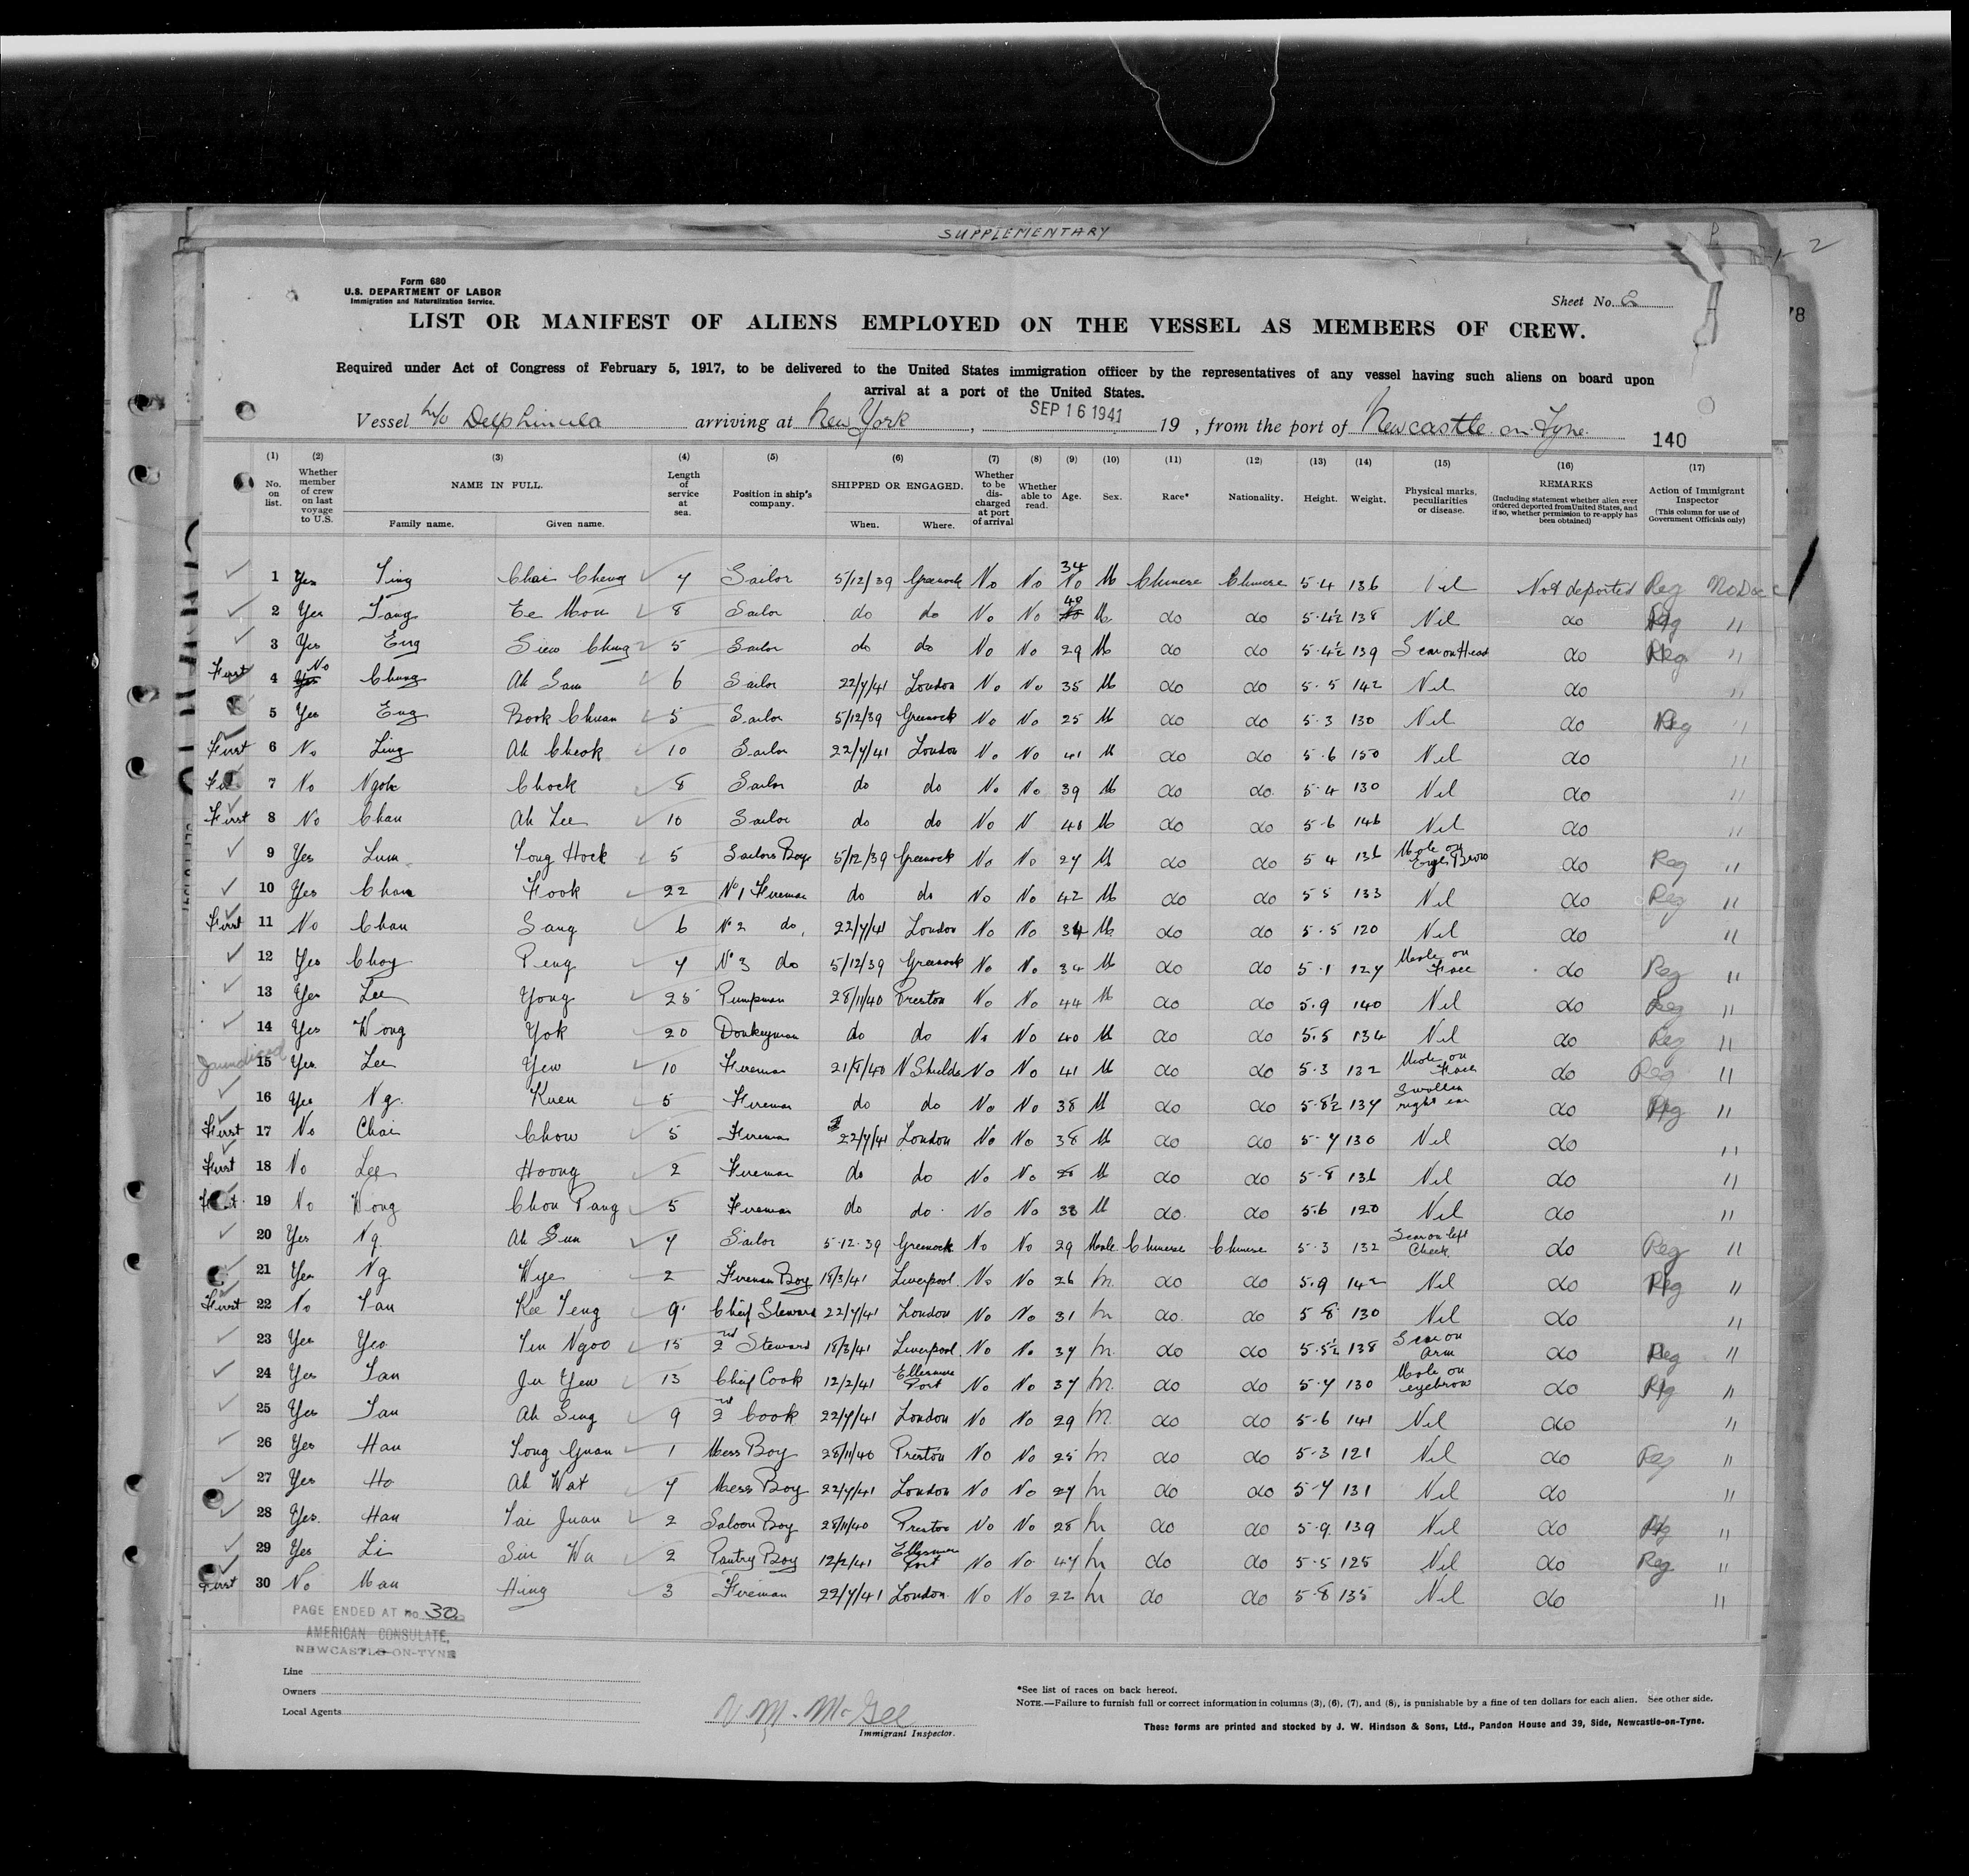 SUPPLEMENTARY
2
78
Form 680
U.S. DEPARTMENT OF LABOR
Immigration and Naturalization Service.
Sheet No. 2
LIST OR MANIFEST OF ALIENS EMPLOYED ON THE VESSEL AS MEMBERS OF CREW.
Required under Act of Congress of February 5, 1917, to be delivered to the United States immigration officer by the representatives of any vessel having such aliens on board upon
arrival at a port of the United States.
Vessel Delphinula arriving at New York, SEP 16 1941 19 , from the port of Newcastle-on-Tyne 140
(1) (2) (3) (4) (5) (6) (7) (8) (9) (10) (11) (12) (13) (14) (15) (16) (17)
No. on list. Whether member of crew on last voyage to U.S. NAME IN FULL. Family name. Given name. Length of service at sea. Position in ship's company. SHIPPED OR ENGAGED. When. Where. Whether to be discharged at port of arrival Whether able to read. Age. Sex. Race* Nationality. Height. Weight. Physical marks, peculiarities or disease. REMARKS (Including statement whether alien ever ordered deported from United States, and if so, whether permission to re-apply has been obtained) Action of Immigrant Inspector (This column for use of Government Officials only)
1 Yes Ting Chai Cheng 7 Sailor 5/12/39 Greenock No No 34 M Chinese Chinese 5.4 136 Nil Not deported Reg No Doc
2 Yes Tang Ee Mou 8 Sailor do do No No 40 M do do 5.4½ 138 Nil do Reg "
3 Yes Eng Siew Chung 5 Sailor do do No No 29 M do do 5.4½ 139 Scar on Head do Reg "
First 4 No Chung Ah Sam 6 Sailor 22/7/41 London No No 35 M do do 5.5 142 Nil do "
5 Yes Eng Book Chuan 5 Sailor 5/12/39 Greenock No No 25 M do do 5.3 130 Nil do Reg "
First 6 No Ling Ah Cheok 10 Sailor 22/7/41 London No No 41 M do do 5.6 150 Nil do "
7 No Ngoh Chock 8 Sailor do do No No 39 M do do 5.4 130 Nil do "
First 8 No Chan Ah Lee 10 Sailor do do No N 40 M do do 5.6 146 Nil do "
9 Yes Lum Tong Hock 5 Sailors Boy 5/12/39 Greenock No No 27 M do do 5 4 136 Mole on Eye Brow do Reg "
10 Yes Chan Fook 22 No 1 Fireman do do No No 42 M do do 5 5 133 Nil do Reg "
First 11 No Chan Sang 6 No 2 do. 22/7/41 London No No 34 M do do 5.5 120 Nil do "
12 Yes Choy Peng 7 No 3 do 5/12/39 Greenock No No 34 M do do 5.1 127 Mole on Face do Reg "
13 Yes Lee Yong 25 Pumpman 28/11/40 Preston No No 44 M do do 5.9 140 Nil do Reg "
14 Yes Wong Yok 20 Donkeyman do do No No 40 M do do 5.5 134 Nil do Reg "
Jaundiced 15 Yes Lee Yew 10 Fireman 21/8/40 N Shields No No 41 M do do 5.3 132 Mole on Face do Reg "
16 Yes Ng Kuen 5 Fireman do do No No 38 M do do 5.8½ 137 Swollen right ear do Reg "
First 17 No Chai Chow 5 Fireman 22/7/41 London No No 38 M do do 5-7 130 Nil do "
First 18 No Lee Hoong 2 Fireman do do No No 28 M do do 5-8 136 Nil do "
First 19 No Wong Chou Pang 5 Fireman do do No No 38 M do do 5.6 120 Nil do "
20 Yes Ng Ah Sun 7 Sailor 5.12.39 Greenock No No 29 Male Chinese Chinese 5.3 132 Scar on left Cheek do Reg "
21 Yes Ng Wye 2 Fireman Boy 18/3/41 Liverpool No No 26 M do do 5.9 142 Nil do Reg "
First 22 No Tan Kee Teng 9 Chief Steward 22/7/41 London No No 31 M do do 5 8 130 Nil do "
23 Yes Yeo Tin Ngoo 15 2nd Steward 18/3/41 Liverpool No No 37 M do do 5.5½ 138 Scar on Arm do Reg "
24 Yes Tan Ju Yew 13 Chief Cook 12/2/41 Ellesmere Port No No 37 M do do 5.7 130 Mole on eyebrow do Reg "
25 Yes Tan Ah Sing 9 2nd Cook 22/7/41 London No No 29 M do do 5-6 141 Nil do "
26 Yes Han Tong Guan 1 Mess Boy 28/11/40 Preston No No 25 M do do 5-3 121 Nil do Reg "
27 Yes Ho Ah Wat 7 Mess Boy 22/7/41 London No No 27 M do do 5-7 131 Nil do "
28 Yes Han Tai Juan 2 Saloon Boy 28/11/40 Preston No No 28 M do do 5.9 139 Nil do Reg "
29 Yes Li Sin Wa 2 Pantry Boy 12/2/41 Ellesmere Port No No 47 M do do 5.5 125 Nil do Reg "
First 30 No Man Hing 3 Fireman 22/7/41 London No No 22 M do do 5-8 135 Nil do "
PAGE ENDED AT no. 30
AMERICAN CONSULATE,
NEWCASTLE-ON-TYNE
Line
Owners
Local Agents
McGee
Immigrant Inspector.
*See list of races on back hereof.
NOTE.—Failure to furnish full or correct information in columns (3), (6), (7), and (8), is punishable by a fine of ten dollars for each alien. See other side.
These forms are printed and stocked by J. W. Hindson & Sons, Ltd., Pandon House and 39, Side, Newcastle-on-Tyne.